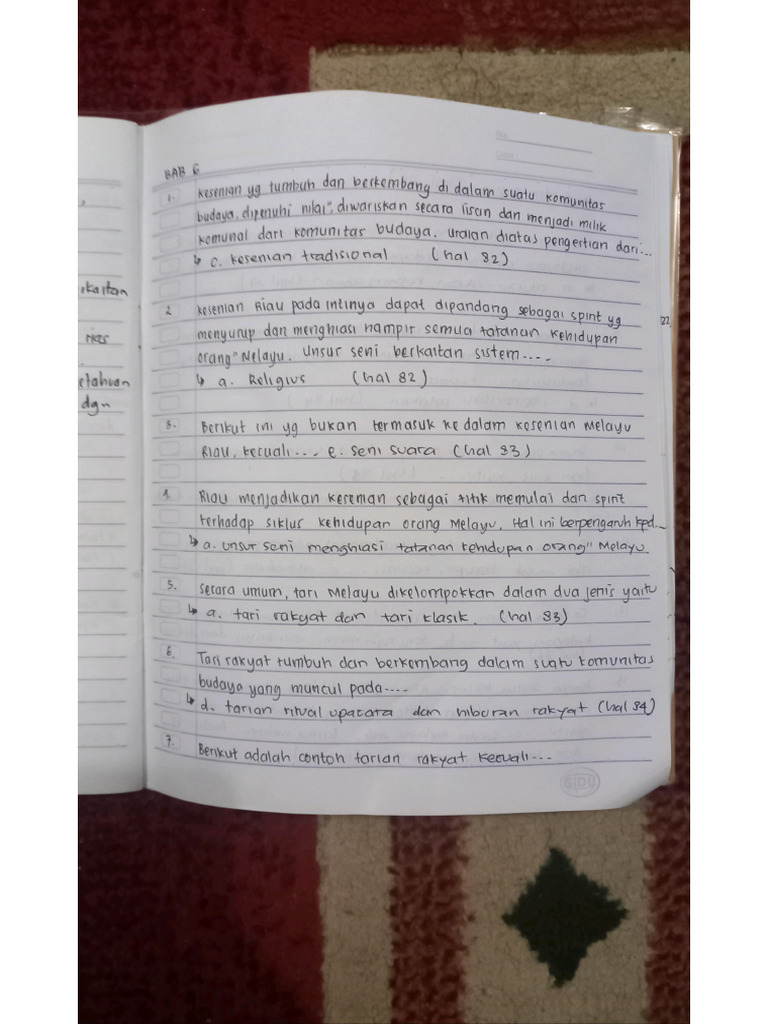 No.
Date:
BAB 6
1. Kesenian yg tumbuh dan berkembang di dalam suatu komunitas
budaya, dipenuhi nilai", diwariskan secara lisan dan menjadi milik
komunal dari komunitas budaya. Uraian diatas pengertian dari...
↳ c. kesenian tradisional (hal 82)
2. Kesenian Riau pada intinya dapat dipandang sebagai spirit yg
menyurup dan menghiasi hampir semua tatanan kehidupan
orang" Melayu. Unsur seni berkaitan sistem....
↳ a. Religius (hal 82)
3. Berikut ini yg bukan termasuk ke dalam kesenian Melayu
Riau, kecuali... e. seni suara (hal 83)
4. Riau menjadikan kesenian sebagai titik memulai dan spirit
terhadap siklus kehidupan orang Melayu. Hal ini berpengaruh kpd...
↳ a. unsur seni menghiasi tatanan kehidupan orang" Melayu
5. Secara umum, tari Melayu dikelompokkan dalam dua jenis yaitu
↳ a. tari rakyat dan tari klasik. (hal 83)
6. Tari rakyat tumbuh dan berkembang dalam suatu komunitas
budaya yang muncul pada....
↳ d. tarian ritual upacara dan hiburan rakyat (hal 84)
7. Berikut adalah contoh tarian rakyat kecuali...
SIDU
rkaitan
etahuan
dgn
22